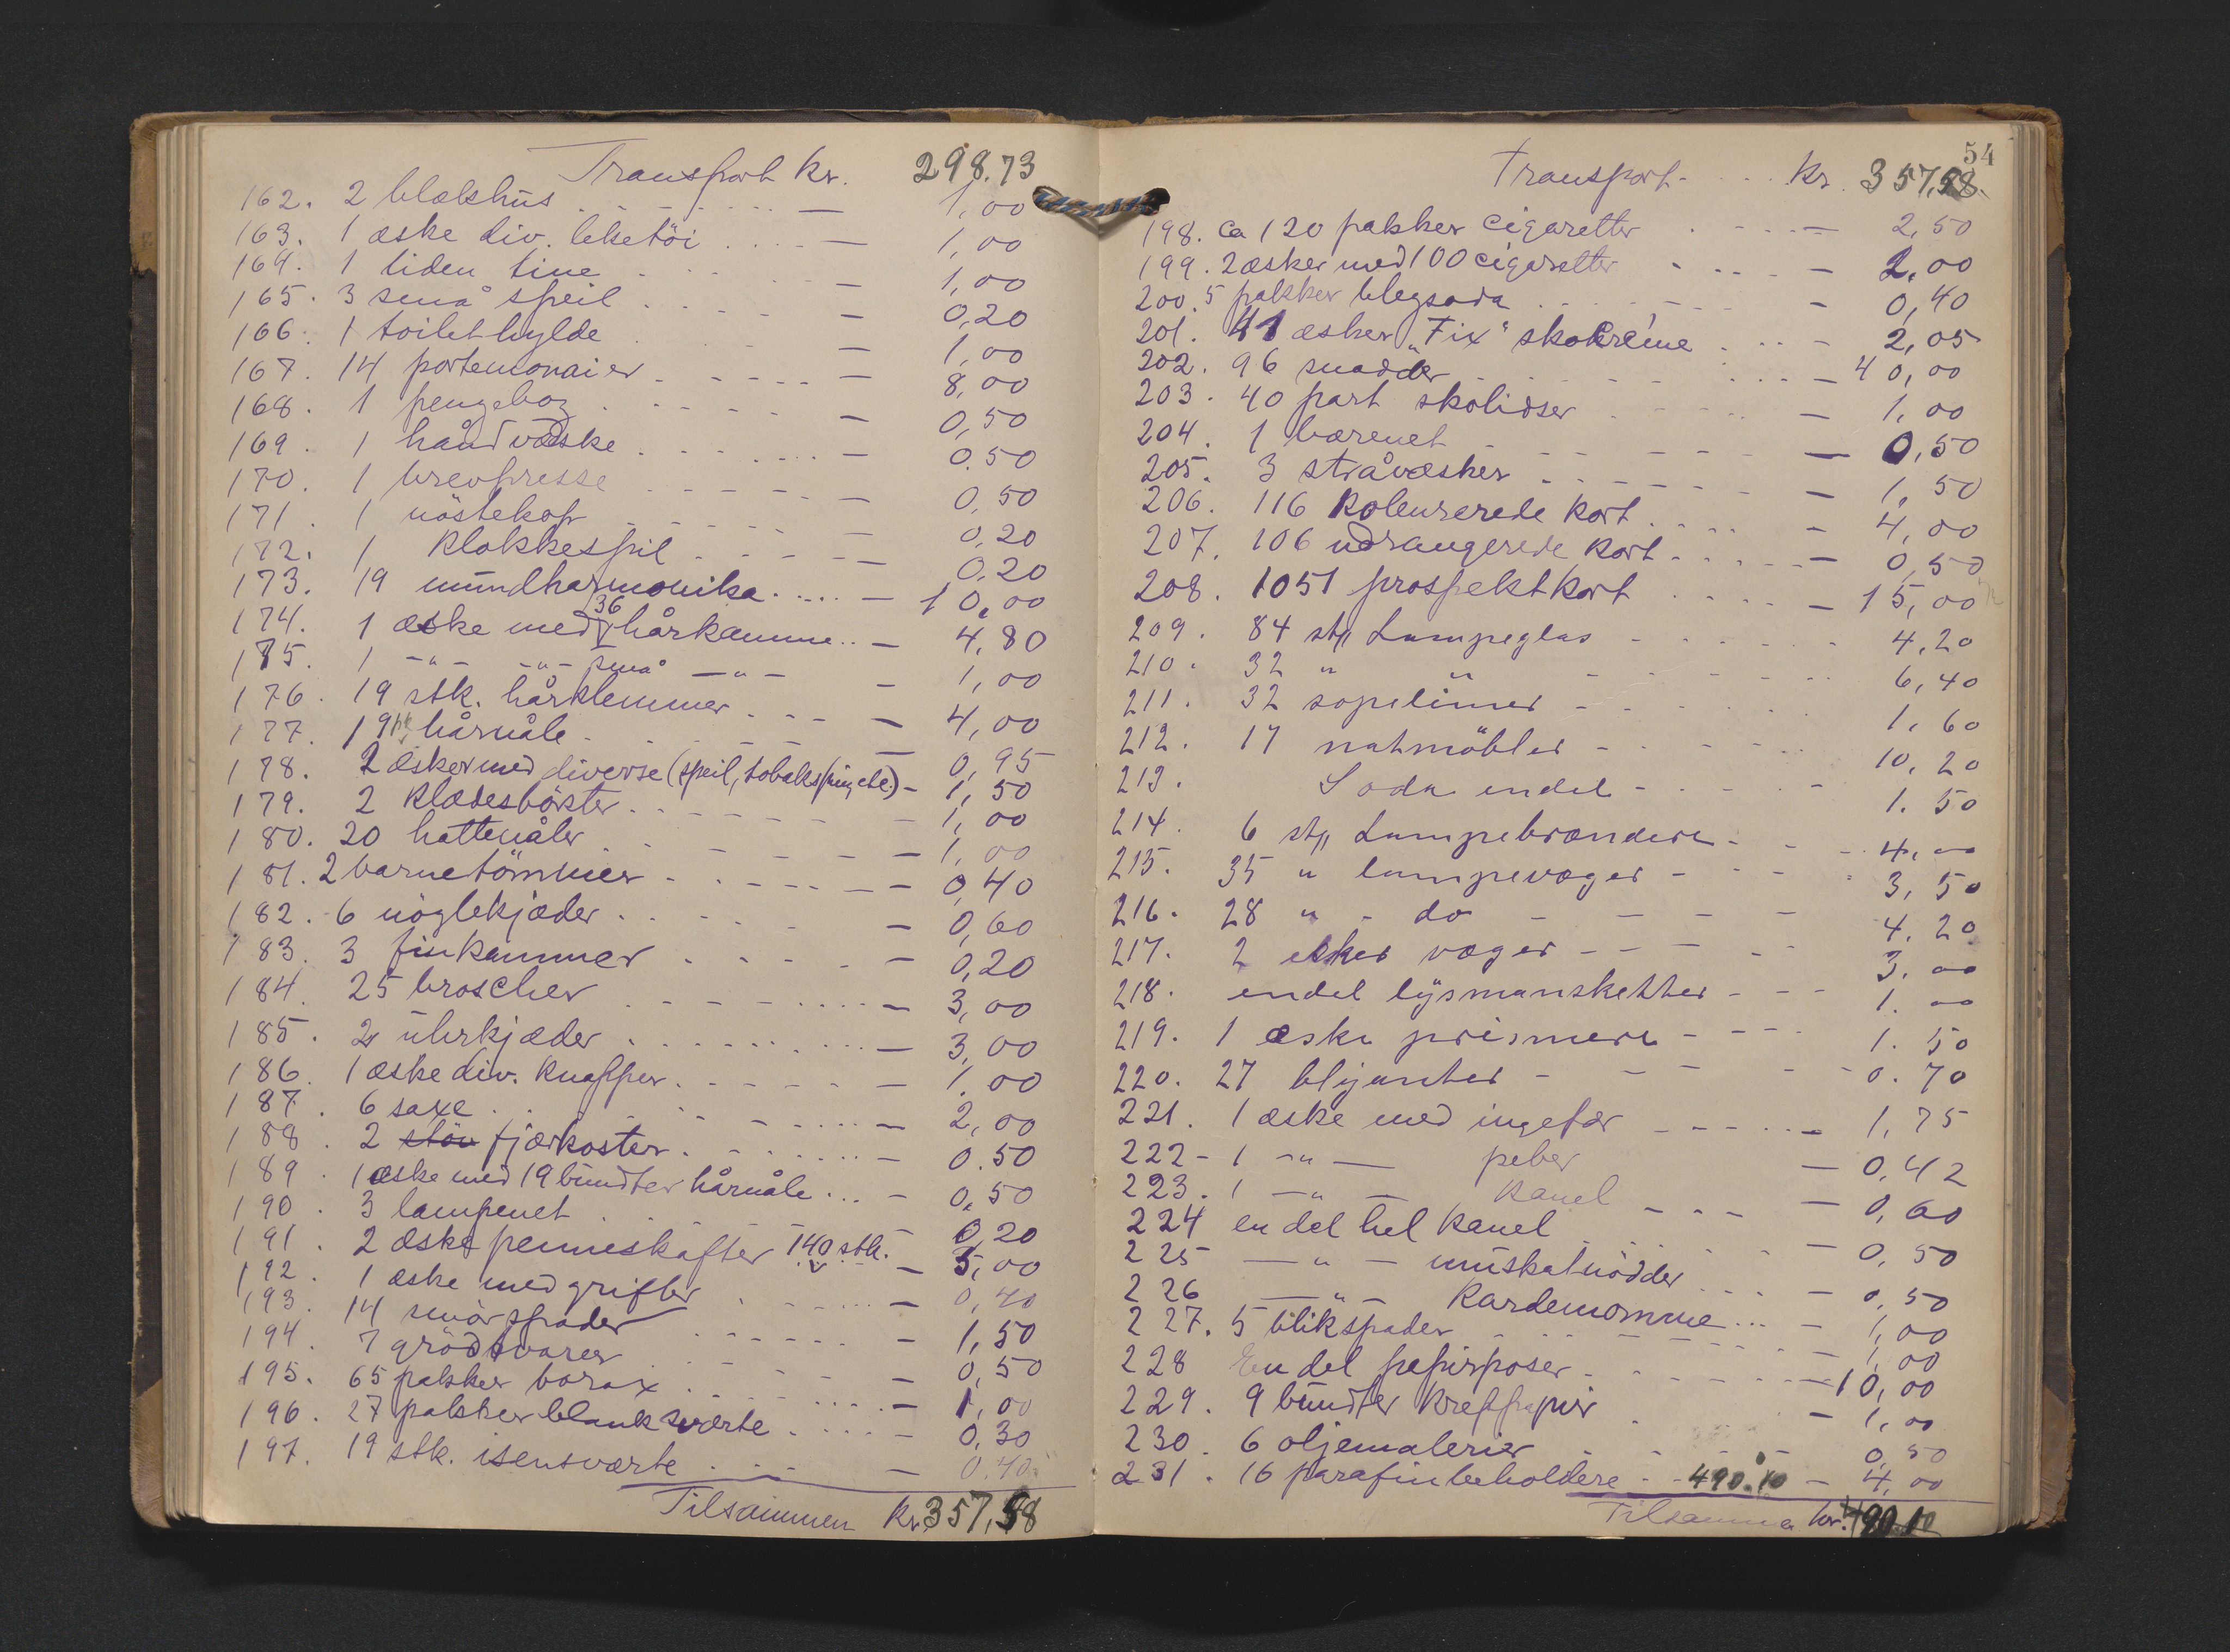 Transport kr. 298.73
162. 2 blækhus — 1,00
163. 1 æske div. leketöi — 1,00
164. 1 liden tine — 1,00
165. 3 små speil — 0,20
166. 1 toilethylde — 1,00
167. 14 portemonaier — 8,00
168. 1 pengebog — 0,50
169. 1 håndvæske — 0.50
170. 1 brevpresse — 0,50
171. 1 nöstekop — 0,20
172. 1 Klokkespil — 0,20
173. 19 mundharmonika — 10,00
174. 1 æske med 36 hårkamme — 4,80
175. 1 -"- -"- små -"- — 1,00
176. 19 stk. hårklemmer — 4,00
177. 19 pk hårnåle — 0,95
178. 2 æsker med diverse (speil, tobakspung etc.) — 1,50
179. 2 Klædesbörster — 1,00
180. 20 hattenåler — 1,00
181. 2 barnetömmer — 0,40
182. 6 nöglekjæder — 0,60
183. 3 finkammer — 0,20
184. 25 broscher — 3,00
185. 2 uhrkjæder — 3,00
186. 1 æske div. Knapper — 1,00
187. 6 saxe — 2,00
188. 2 stöv fjærkoster — 0.50
189. 1 æske med 19 bundter hårnåle — 0,50
190. 3 lampenet — 0,20
191. 2 æske penneskafter 140 stk. — 5,00
192. 1 æske med grifler — 0,40
193. 14 smörspader — 1,50
194. 7 grödtvarer — 0,50
195. 65 pakker borax — 1,00
196. 27 pakker blanksværte — 0,30
197. 19 stk. isensværte — 0.40
Tilsammen kr. 357,58
54
Transport kr. 357,58
198. ca 120 pakker cigaretter — 2,50
199. 2 æsker med 100 cigaretter — 2,00
200. 5 pakker blegsoda — 0,40
201. 41 æsker "Fix" skokréme — 2,05
202. 96 snadder — 40,00
203. 40 part skolisser — 1,00
204. 1 bærenet — 0,50
205. 3 stråvæsker — 1,50
206. 116 Koleurerede Kort — 4,00
207. 106 udrangerede Kort — 0,50
208. 1051 prospektkort — 15,00
209. 84 stk Lampeglas - 4,20
210. 32 " " - 6,40
211. 32 sopelimer - 1.60
212. 17 natmöbler - 10,20
213. Soda endel - 1.50
214. 6 stk Lampebrændere - 4,00
215. 35 " lampevæger - 3,50
216. 28 " - do - 4.20
217. 2 esker væger - 3.00
218. endel lysmansketter - 1.00
219. 1 æske prismere - 1.50
220. 27 blyanter - 0.70
221. 1 æske med ingefær — 1,75
222 - 1 -"- peber — 0,42
223. 1 -"- Kanel — 0,60
224 en del hel Kanel — 0,50
225 -"- muskatnödder — 0,50
226 -"- Kardemomme — 1,00
227. 5 blikspader — 1,00
228 En del papirposer — 10,00
229. 9 bundter Kreppapir — 1,00
230. 6 oljemalerier — 0,50
231. 16 parafinbeholdere — 490.10 — 4,00
Tilsamme kr. 490.10